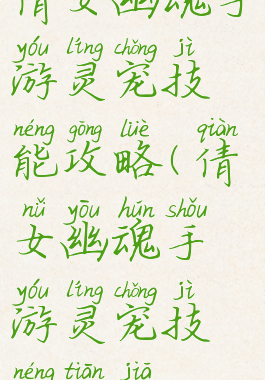 倩女幽魂手
yóu líng chǒng jì
游灵宠技
néng gōng lüè qiàn
能攻略(倩
nǚ yōu hún shǒu
女幽魂手
yóu líng chǒng jì
游灵宠技
néng tiān jiā